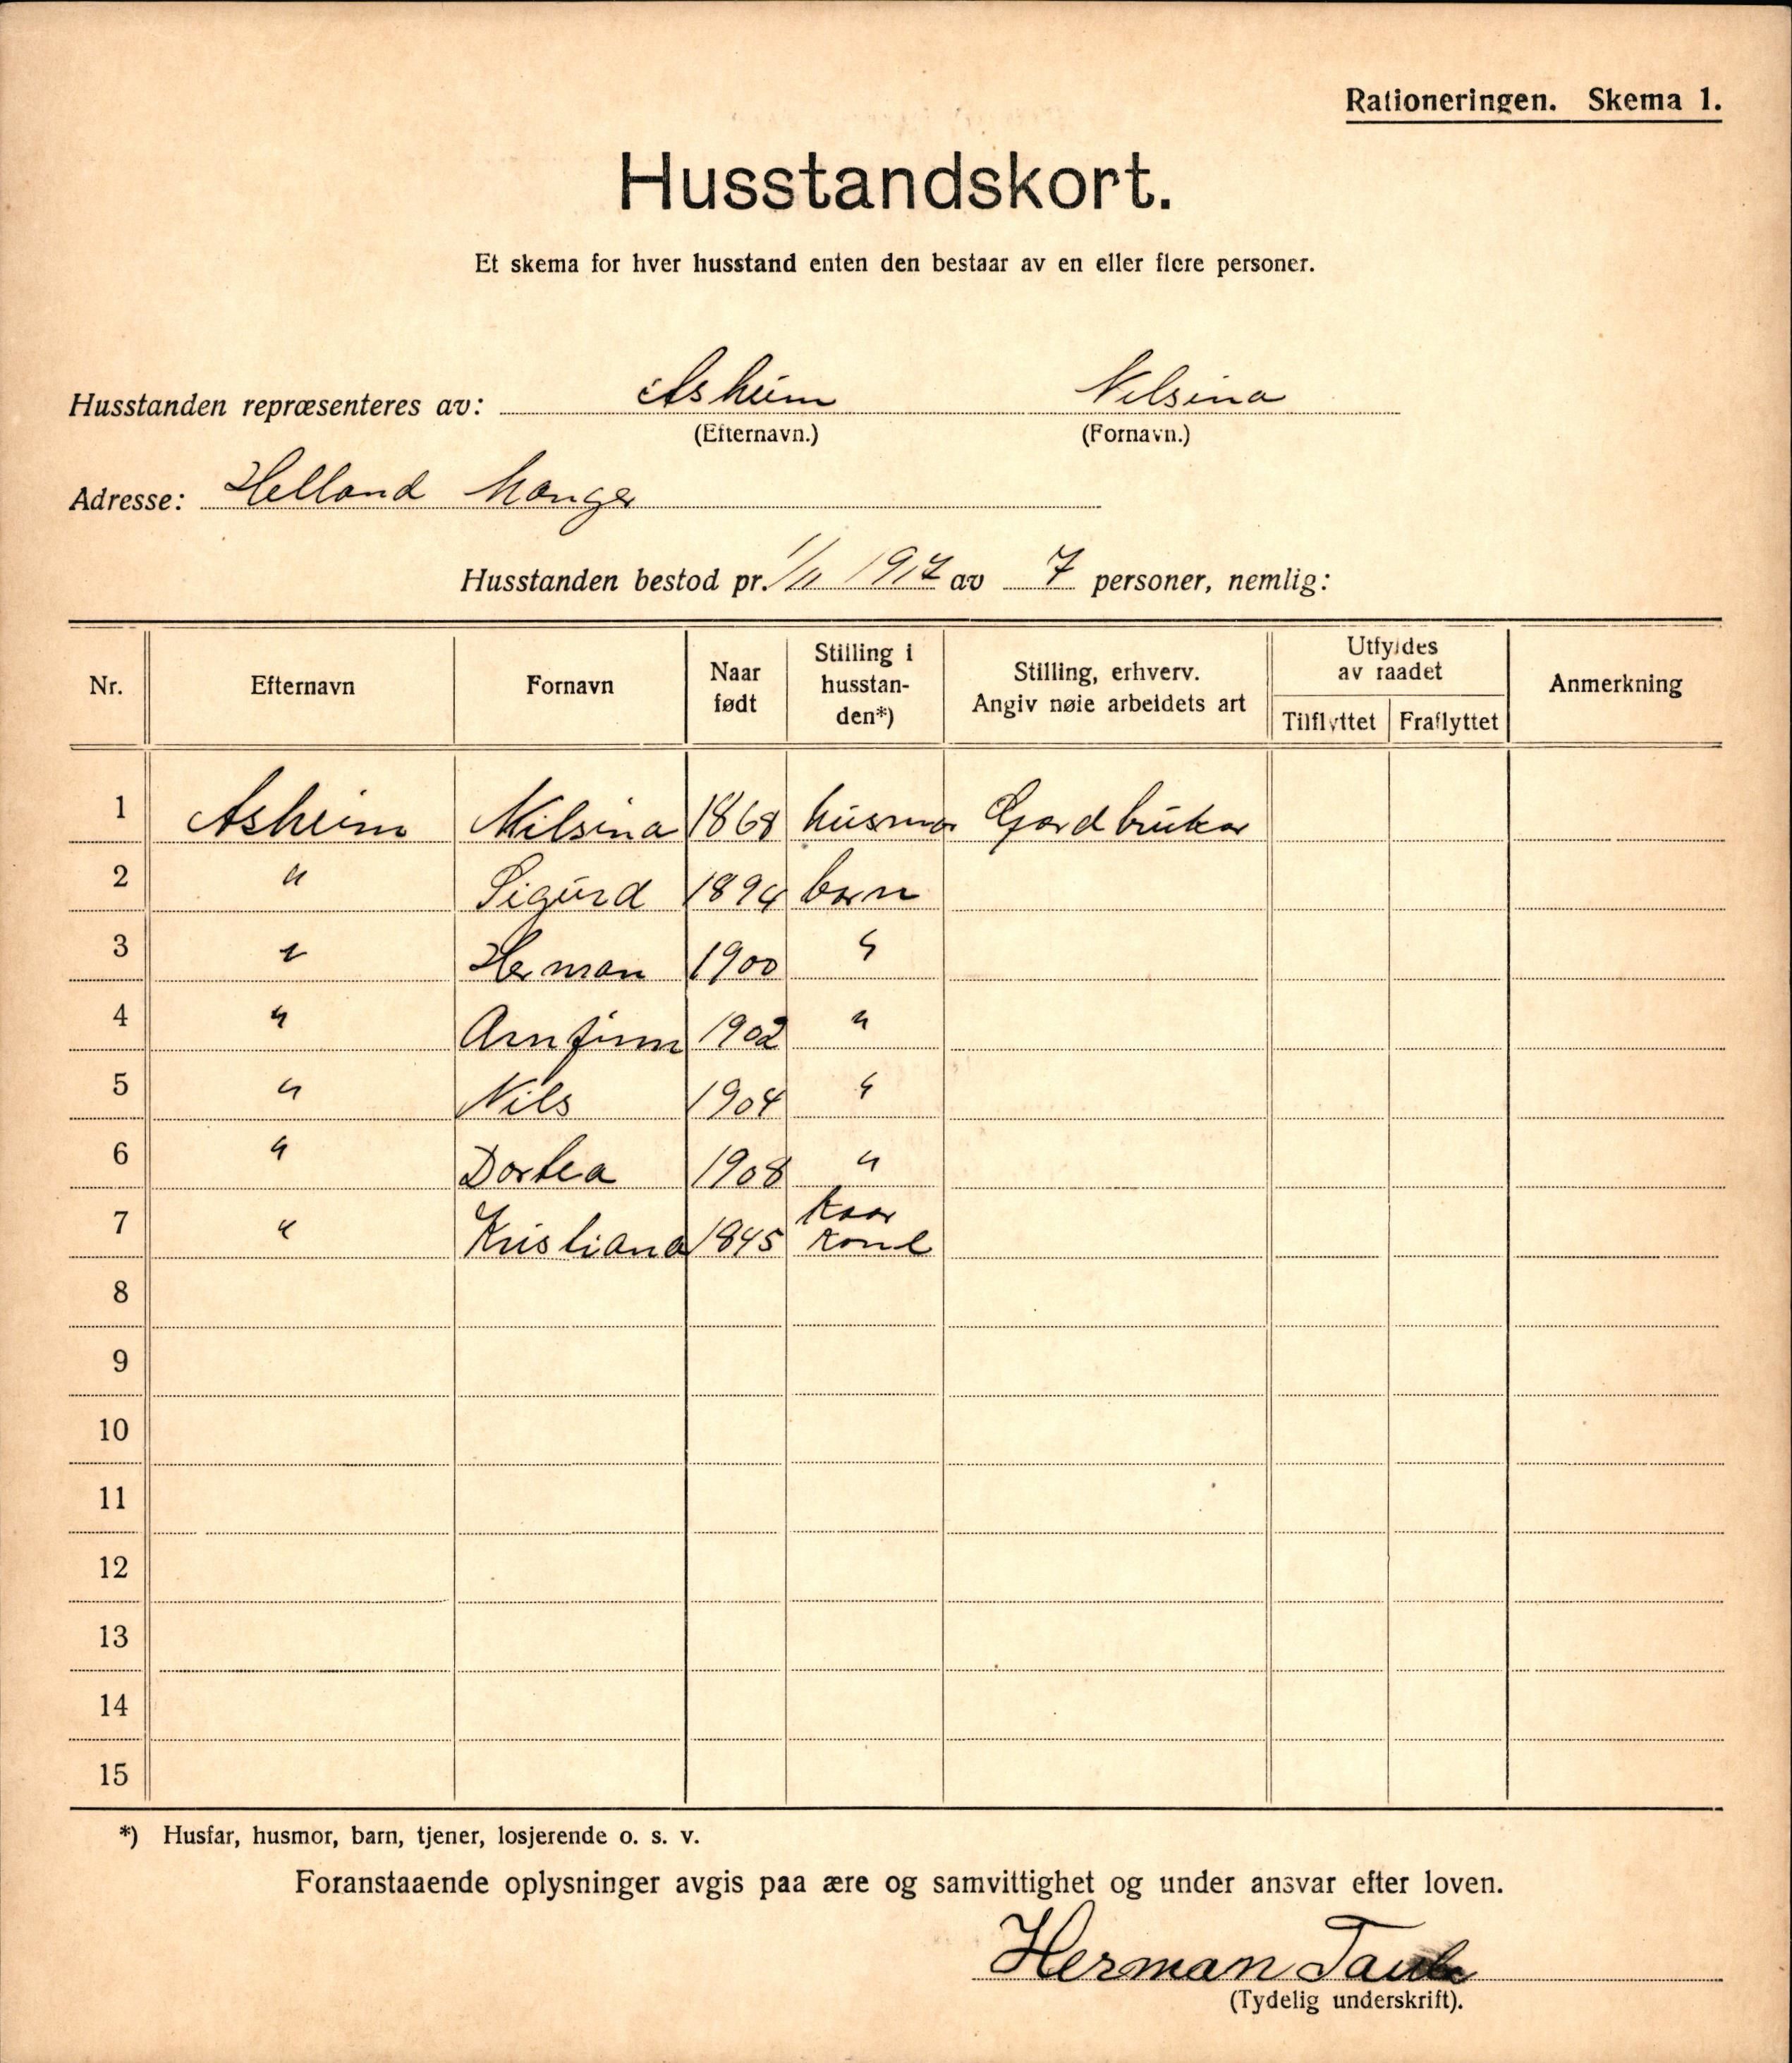 Rationeringen. Skema 1.
Husstandskort.
Et skema for hver husstand enten den bestaar av en eller flere personer.
Husstanden repræsenteres av: Asheim Nilsina
(Efternavn.) (Fornavn.)
Adresse: Helland Manger
Husstanden bestod pr. 1/11 1917 av 7 personer, nemlig:
Nr. Efternavn Fornavn Naar født Stilling i husstanden*) Stilling, erhverv. Angiv nøie arbeidets art Utfyldes av raadet Tilflyttet Fraflyttet Anmerkning
1 Asheim Nilsina 1868 husmor Gardbrukar
2 " Sigurd 1894 born
3 " Herman 1900 "
4 " Arnfinn 1902 "
5 " Nils 1904 "
6 " Dortea 1908 "
7 " Kristiana 1845 Kaar kone
8
9
10
11
12
13
14
15
*) Husfar, husmor, barn, tjener, losjerende o. s. v.
Foranstaaende oplysninger avgis paa ære og samvittighet og under ansvar efter loven.
Herman
(Tydelig underskrift).